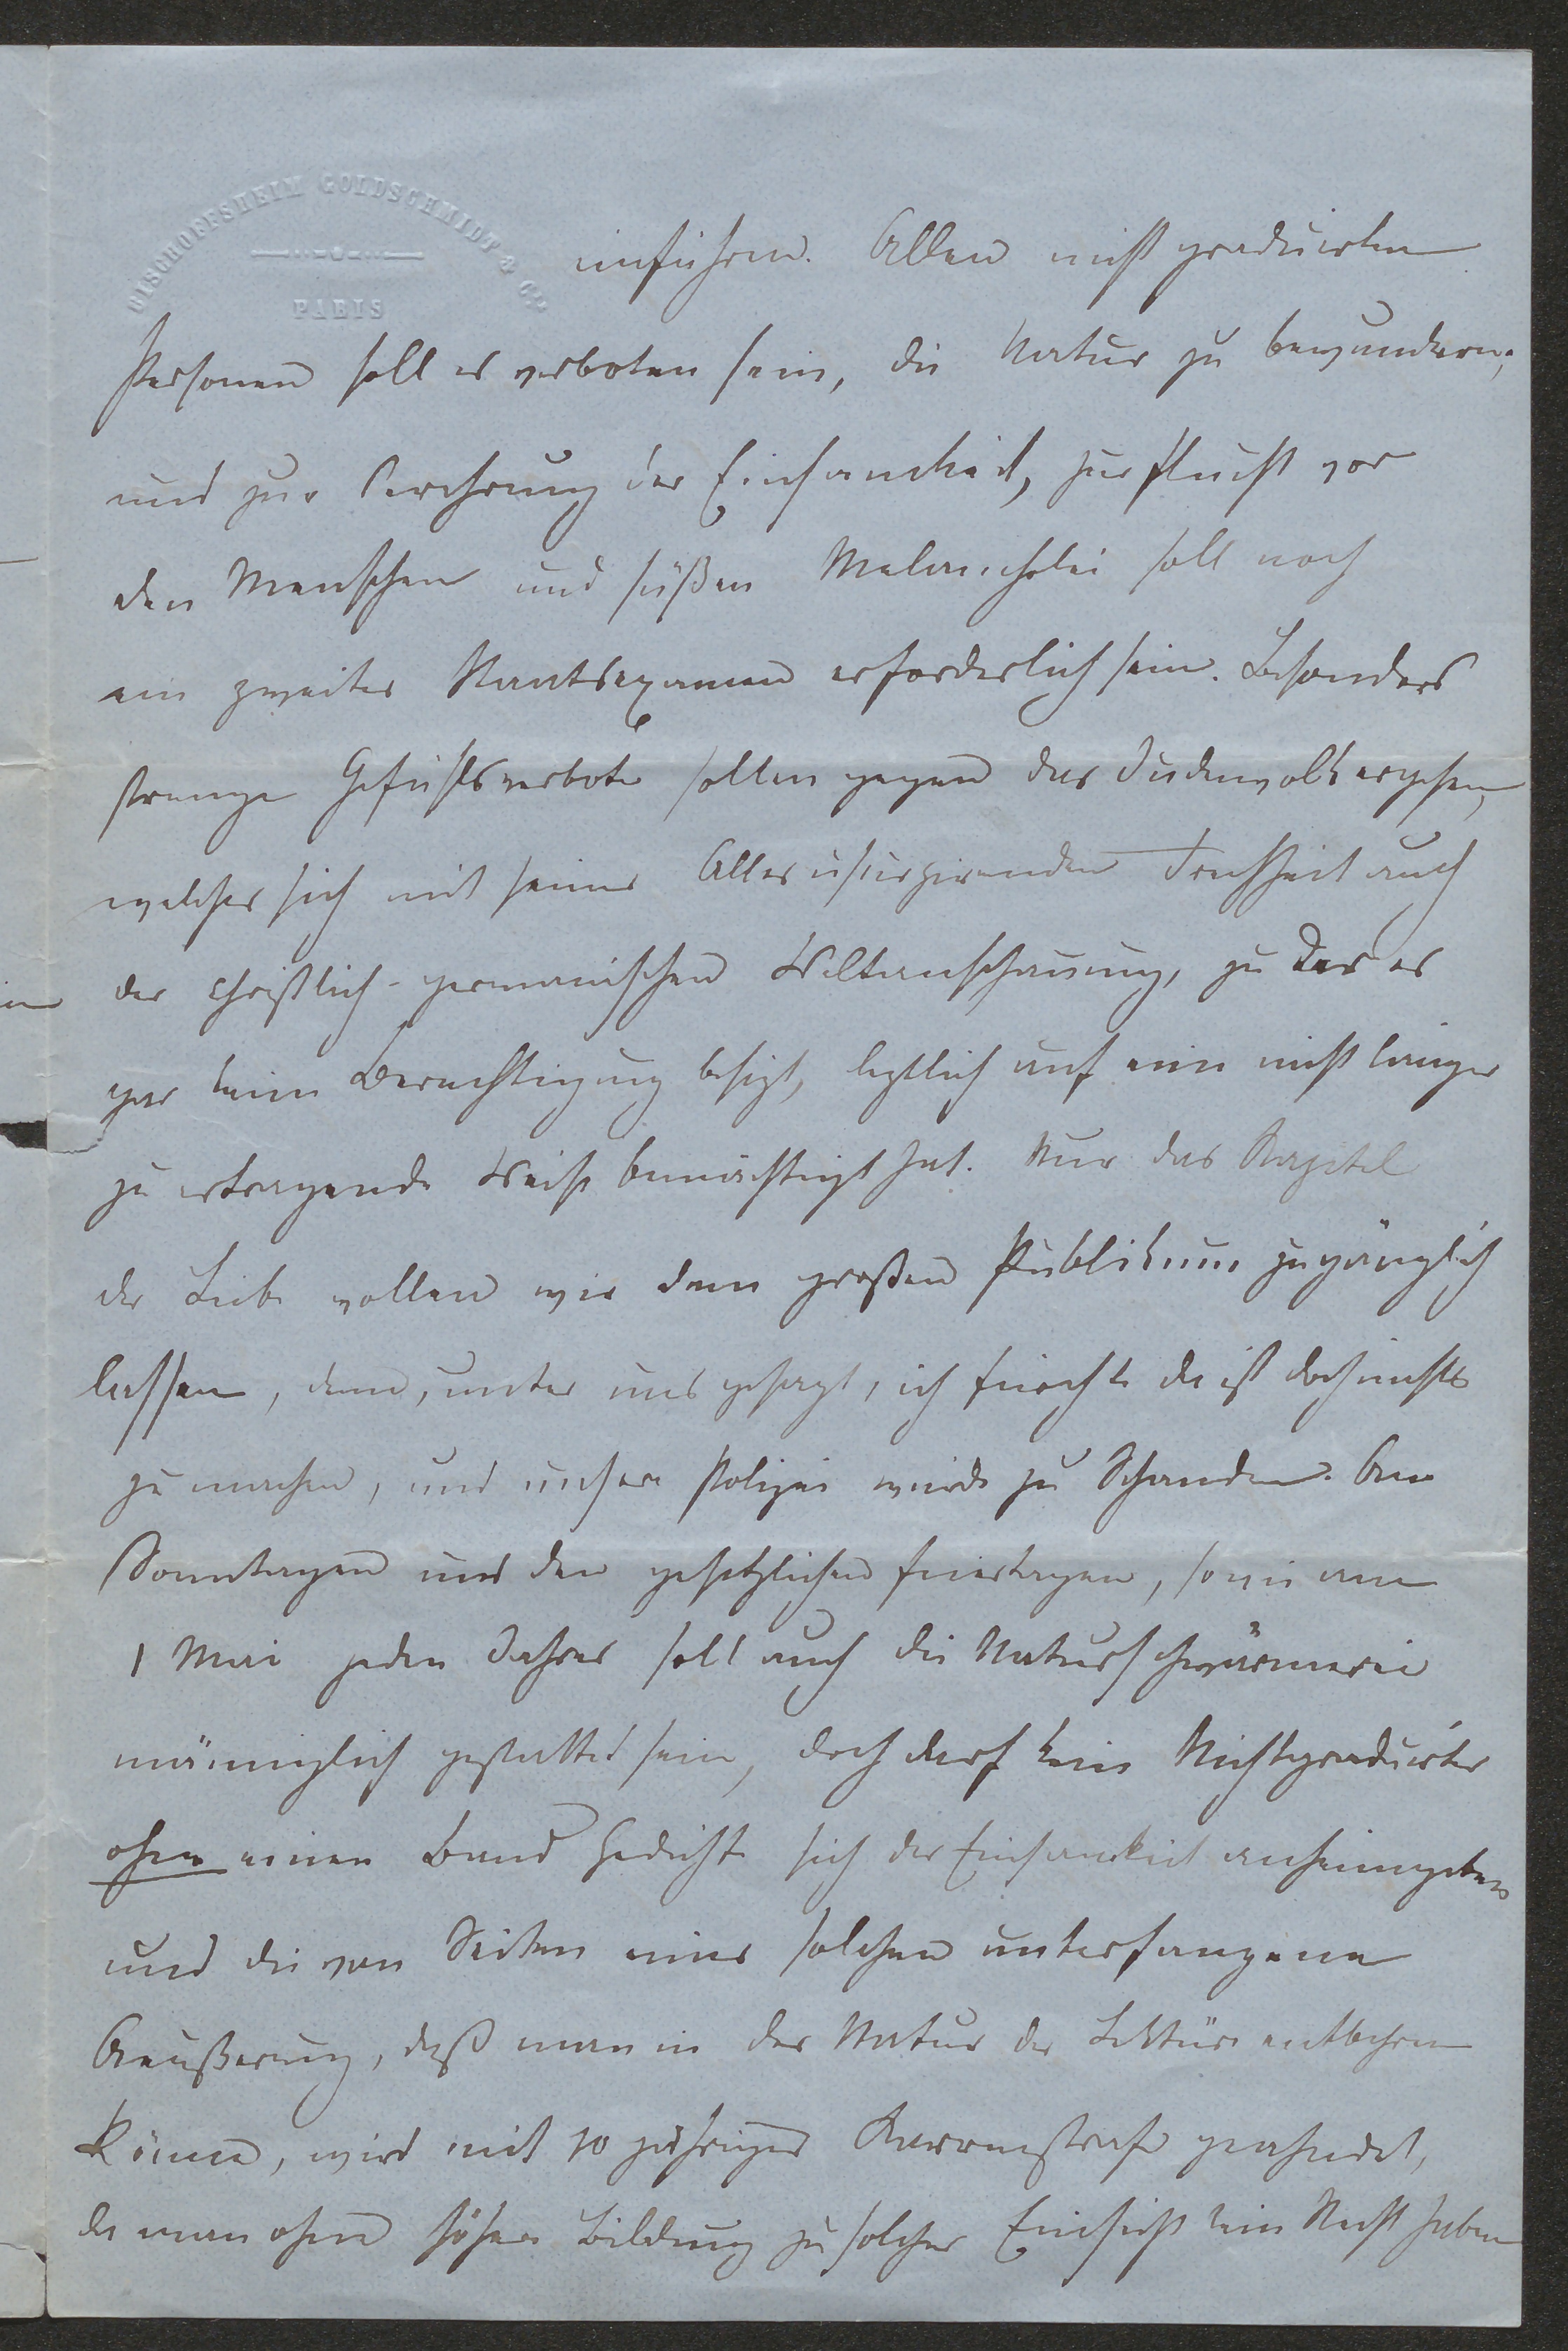 BISCHOFFSHEIM GOLDSCHMIDT & Cie
PARIS
einführen. Allen nicht graduirten
Personen soll es verboten sein, die Natur zu bewundern;
und zur Verehrung der Einsamkeit, zur Flucht vor
den Menschen und süßen Melancholei soll noch
ein zweites Staatsexamen erforderlich sein. Besonders
strenge Gefühlsverbote sollen gegen das Judenvolk ergehen,
welches sich mit seiner Alles usurpirenden Frechheit auch
der christlich-germanischen Weltanschauung, zu der es
gar keine Berechtigung besizt, leztlich auf eine nicht länger
zu ertragende Weise bemächtigt hat. Nur das Kapitel
der Liebe wollen wir dem großen Publikum zugänglich
lassen, denn, unter uns gesagt, ich fürchte da ist doch nichts
zu machen, und unsere Polizei würde zu Schanden. An
Sonntagen und den gesetzlichen Feiertagen, sowie am
1 Mai jeden Jahres soll auch die Naturschwärmerei
männiglich gestattet sein, doch darf kein Nichtgraduirter
ohne einen Band Gedichte sich der Einsamkeit anheimgeben
und die von Seiten eines solchen unterfangene
Aeußerung, daß man in der Natur der Lektüre entbehren
könne, wird mit 10 jähriger Karrenstrafe geahndet,
da man ohne höhere Bildung zu solcher Einsicht kein Recht haben